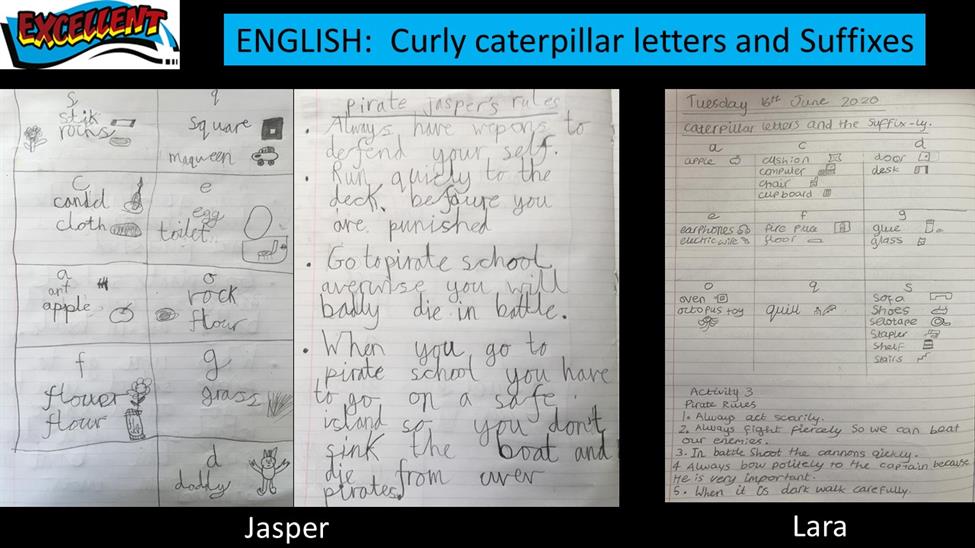 EXCELLENT
ENGLISH: Curly caterpillar letters and Suffixes
s
stik
rocks
q
square
maqueen
c
candel
cloth
e
egg
toilet
a
art
apple
o
rock
flour
f
flower
flour
g
grass
d
daddy
pirate jasper's rules
• Always have wepons to
defend your self.
• Run quicly to the
deck. before you
are punished
• Go to pirate school
averwise you will
badly die in battle.
• When you go to
pirate school you have
to go on a safe
island so you don't
sink the boat and
die from uver
pirates.
Tuesday 16th June 2020
caterpillar letters and the suffix -ly.
a
apple
c
cushion
computer
chair
cupboard
d
door
desk
e
earphones
electric wire
f
fire place
floor
g
glue
glass
o
oven
octopus toy
q
quill
s
sofa
shoes
selotape
stapler
shelf
stairs
Activity 3
Pirate Rules
1. Always act scarily.
2. Always fight fiercely so we can beat
our enemies.
3. In battle shoot the cannons qickly.
4 Always bow politely to the captain because
He is very important.
5. When it is dark walk carefully.
Jasper
Lara